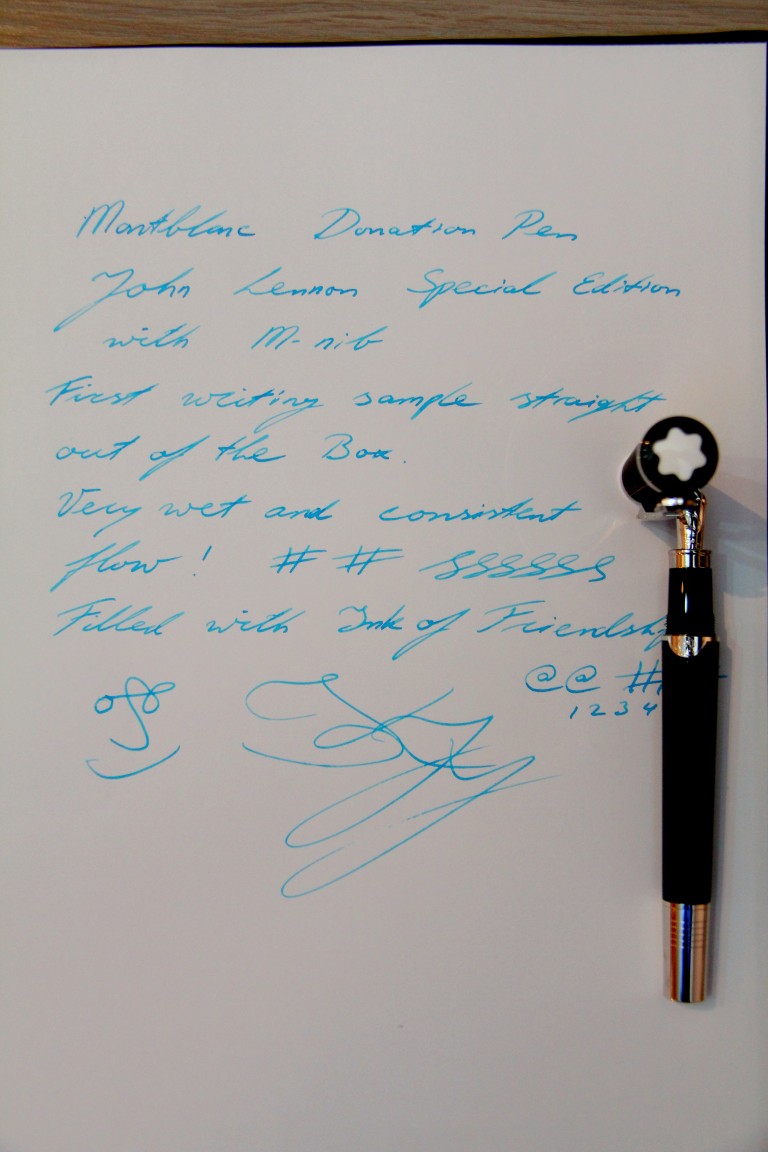 Montblanc Donation Pen
John Lennon Special Edition
with M-nib
First writing sample straight
out of the Box.
Very wet and consistent
flow! # # sssssss
Filled with Ink of Friendship
@@ #
1 2 3 4